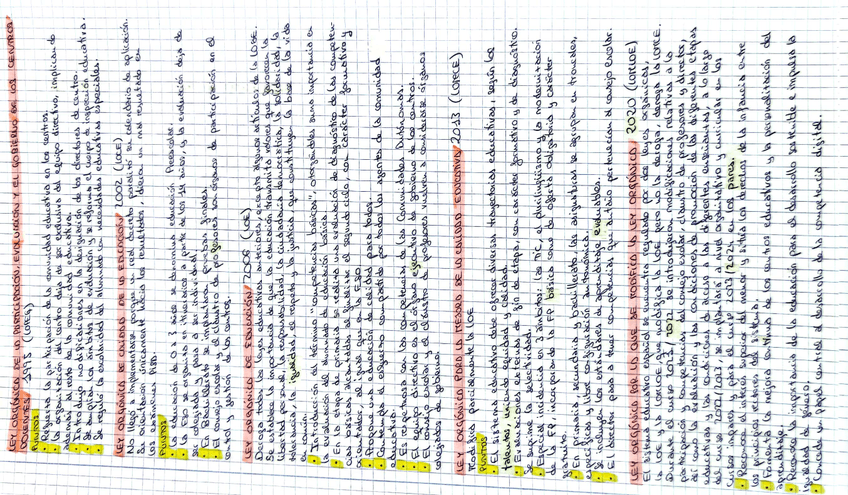 LEY ORGÁNICA DE LA PARTICIPACIÓN, EVALUACIÓN Y EL GOBIERNO DE LOS CENTROS
DOCENTES, 1995 (LOPEG)
PUNTOS
Refuerza la participación de la comunidad educativa en los centros.
La organización del centro deja de ser exclusiva del equipo directivo, implicando
además al resto de la comunidad educativa.
Introdujo modificaciones en la designación de los directores de centro.
Se amplían los ámbitos de evaluación y se reforma el cuerpo de inspección educativa.
Se reguló la escolaridad del alumnado con necesidades educativas especiales.
LEY ORGÁNICA DE CALIDAD DE LA EDUCACIÓN, 2002 (LOCE)
No llegó a implementarse porque un real decreto paralizó su calendario de aplicación.
Se orientaban únicamente hacia los resultados,
PUNTOS
La educación de 0 a 3 años se denomina educación Preescolar.
La ESO se organiza en itinerarios a partir de los 14 años, y la evaluación deja de
ser integrada para a ser individual.
En Bachillerato se implantaron pruebas finales.
El consejo escolar y el claustro de profesores son órganos de participación en el
control y gestión de los centros.
LEY ORGÁNICA DE EDUCACIÓN, 2006 (LOE)
Deroga todas las leyes educativas anteriores, excepto algunos artículos de la LODE.
Se establece la importancia de que la educación transmita valores que favorezcan la
libertad personal, la responsabilidad, la ciudadanía democrática, la solidaridad, la
tolerancia, la igualdad, el respeto y la justicia, que constituyen la base de la vida
en común.
Introducción del término "competencias básicas", otorgándoles suma importancia en
la evaluación del alumnado de educación básica.
En la etapa de primaria se realiza una evaluación de diagnóstico de las competen-
cias básicas alcanzadas al finalizar el segundo ciclo, con carácter formativo y
orientador, al igual que en la ESO.
Propone una educación de calidad para todos.
Contempla el esfuerzo compartido por todos los agentes de la comunidad
educativa.
Es respetuosa con las competencias de las Comunidades Autónomas.
El equipo directivo es el órgano ejecutivo de gobierno de los centros.
El consejo escolar y el claustro de profesores vuelven a considerarse órganos
colegiados de gobierno.
LEY ORGÁNICA PARA LA MEJORA DE LA CALIDAD EDUCATIVA, 2013 (LOMCE)
Modifica parcialmente la LOE
PUNTOS
El sistema educativo debe ofrecer diversas trayectorias educativas, según los
talentos, uniendo equidad y calidad.
Evaluaciones externas de fin de etapa, con carácter formativo y de diagnóstico.
Se suprime la selectividad.
Especial incidencia en 3 ámbitos: las TIC, el plurilingüismo y la modernización
de la FP, incorporando la FP básica como de oferta obligatoria y carácter
gratuito.
En primaria, secundaria y bachillerato, las asignaturas se agrupan en troncales,
específicas y libre configuración autonómica.
Se incluyen los estándares de aprendizaje evaluables.
El director pasa a tener competencias que antaño pertenecían al consejo escolar.
LEY ORGÁNICA POR LA QUE SE MODIFICA LA LEY ORGÁNICA, 2020 (LOMLOE)
El sistema educativo español actualmente regulado por dos leyes orgánicas,
la LODE y la LOMLOE, que modifica la LOE pero no la deroga, deroga la LOMCE.
Durante el curso 2021/2022 se introdujeron modificaciones relativas a la
participación y competencias del consejo escolar, claustro de profesores y director,
así como la evaluación y las condiciones de promoción de las diferentes etapas
educativas y las condiciones de acceso a las diferentes enseñanzas, a lo largo
del curso 2022/2023, se implantará a nivel organizativo y curricular en los
cursos impares y para el curso 2023/2024 en los pares.
Reconoce el interés superior del menor y sitúa los derechos de la infancia entre
los principios rectores del sistema.
Fomenta la mejora continua de los centros educativos y la personalización del
aprendizaje.
Reconoce la importancia de la educación para el desarrollo sostenible e impulsa la
igualdad de género.
Concede un papel central al desarrollo de la competencia digital.